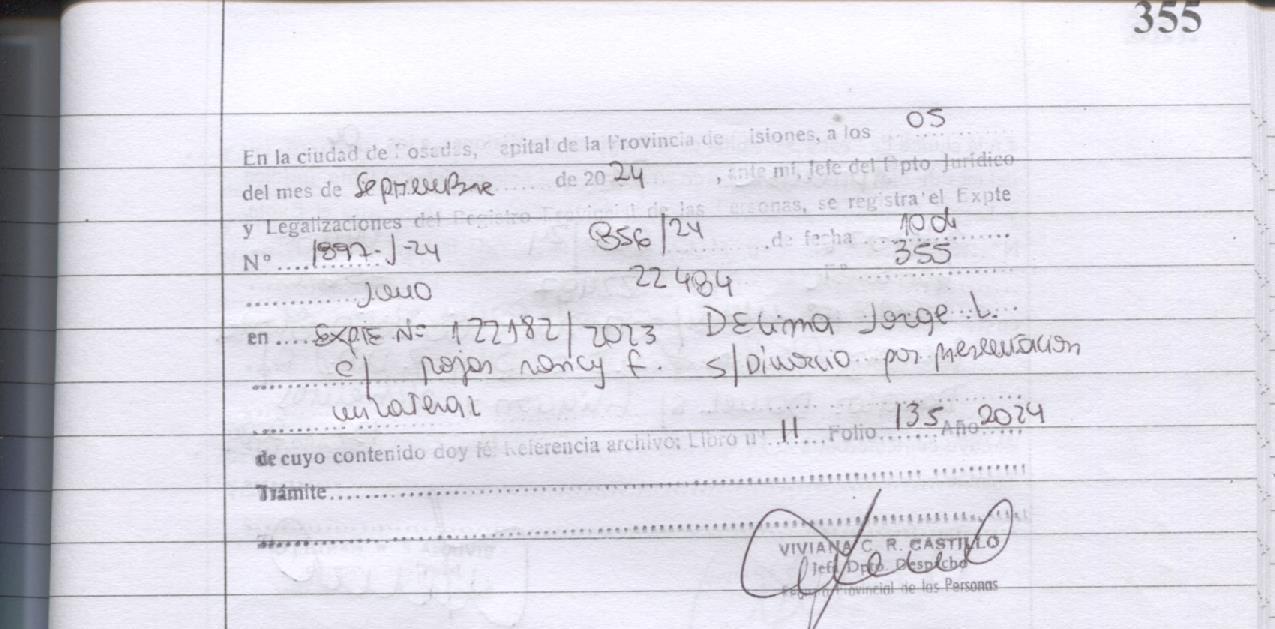 355
En la ciudad de Posadas, Capital de la Provincia de Misiones, a los 05
del mes de septiembre de 2024, ante mi, Jefe del Dpto Jurídico
y Legalizaciones del Registro Provincial de las Personas, se registra el Expte
N° 1897-J-24 856/24 de fecha
355
22484
en Expte Nº 122182/2023 DElima Jorge L.
c/ Rojas Nancy F. s/Divorcio por presentacion
unilateral
de cuyo contenido doy fé. Referencia archivo: Libro nº 11 Folio 135 Año 2024
Trámite
VIVIANA C. R. CASTILLO
Jefe Dpto. Despacho
Registro Provincial de las Personas